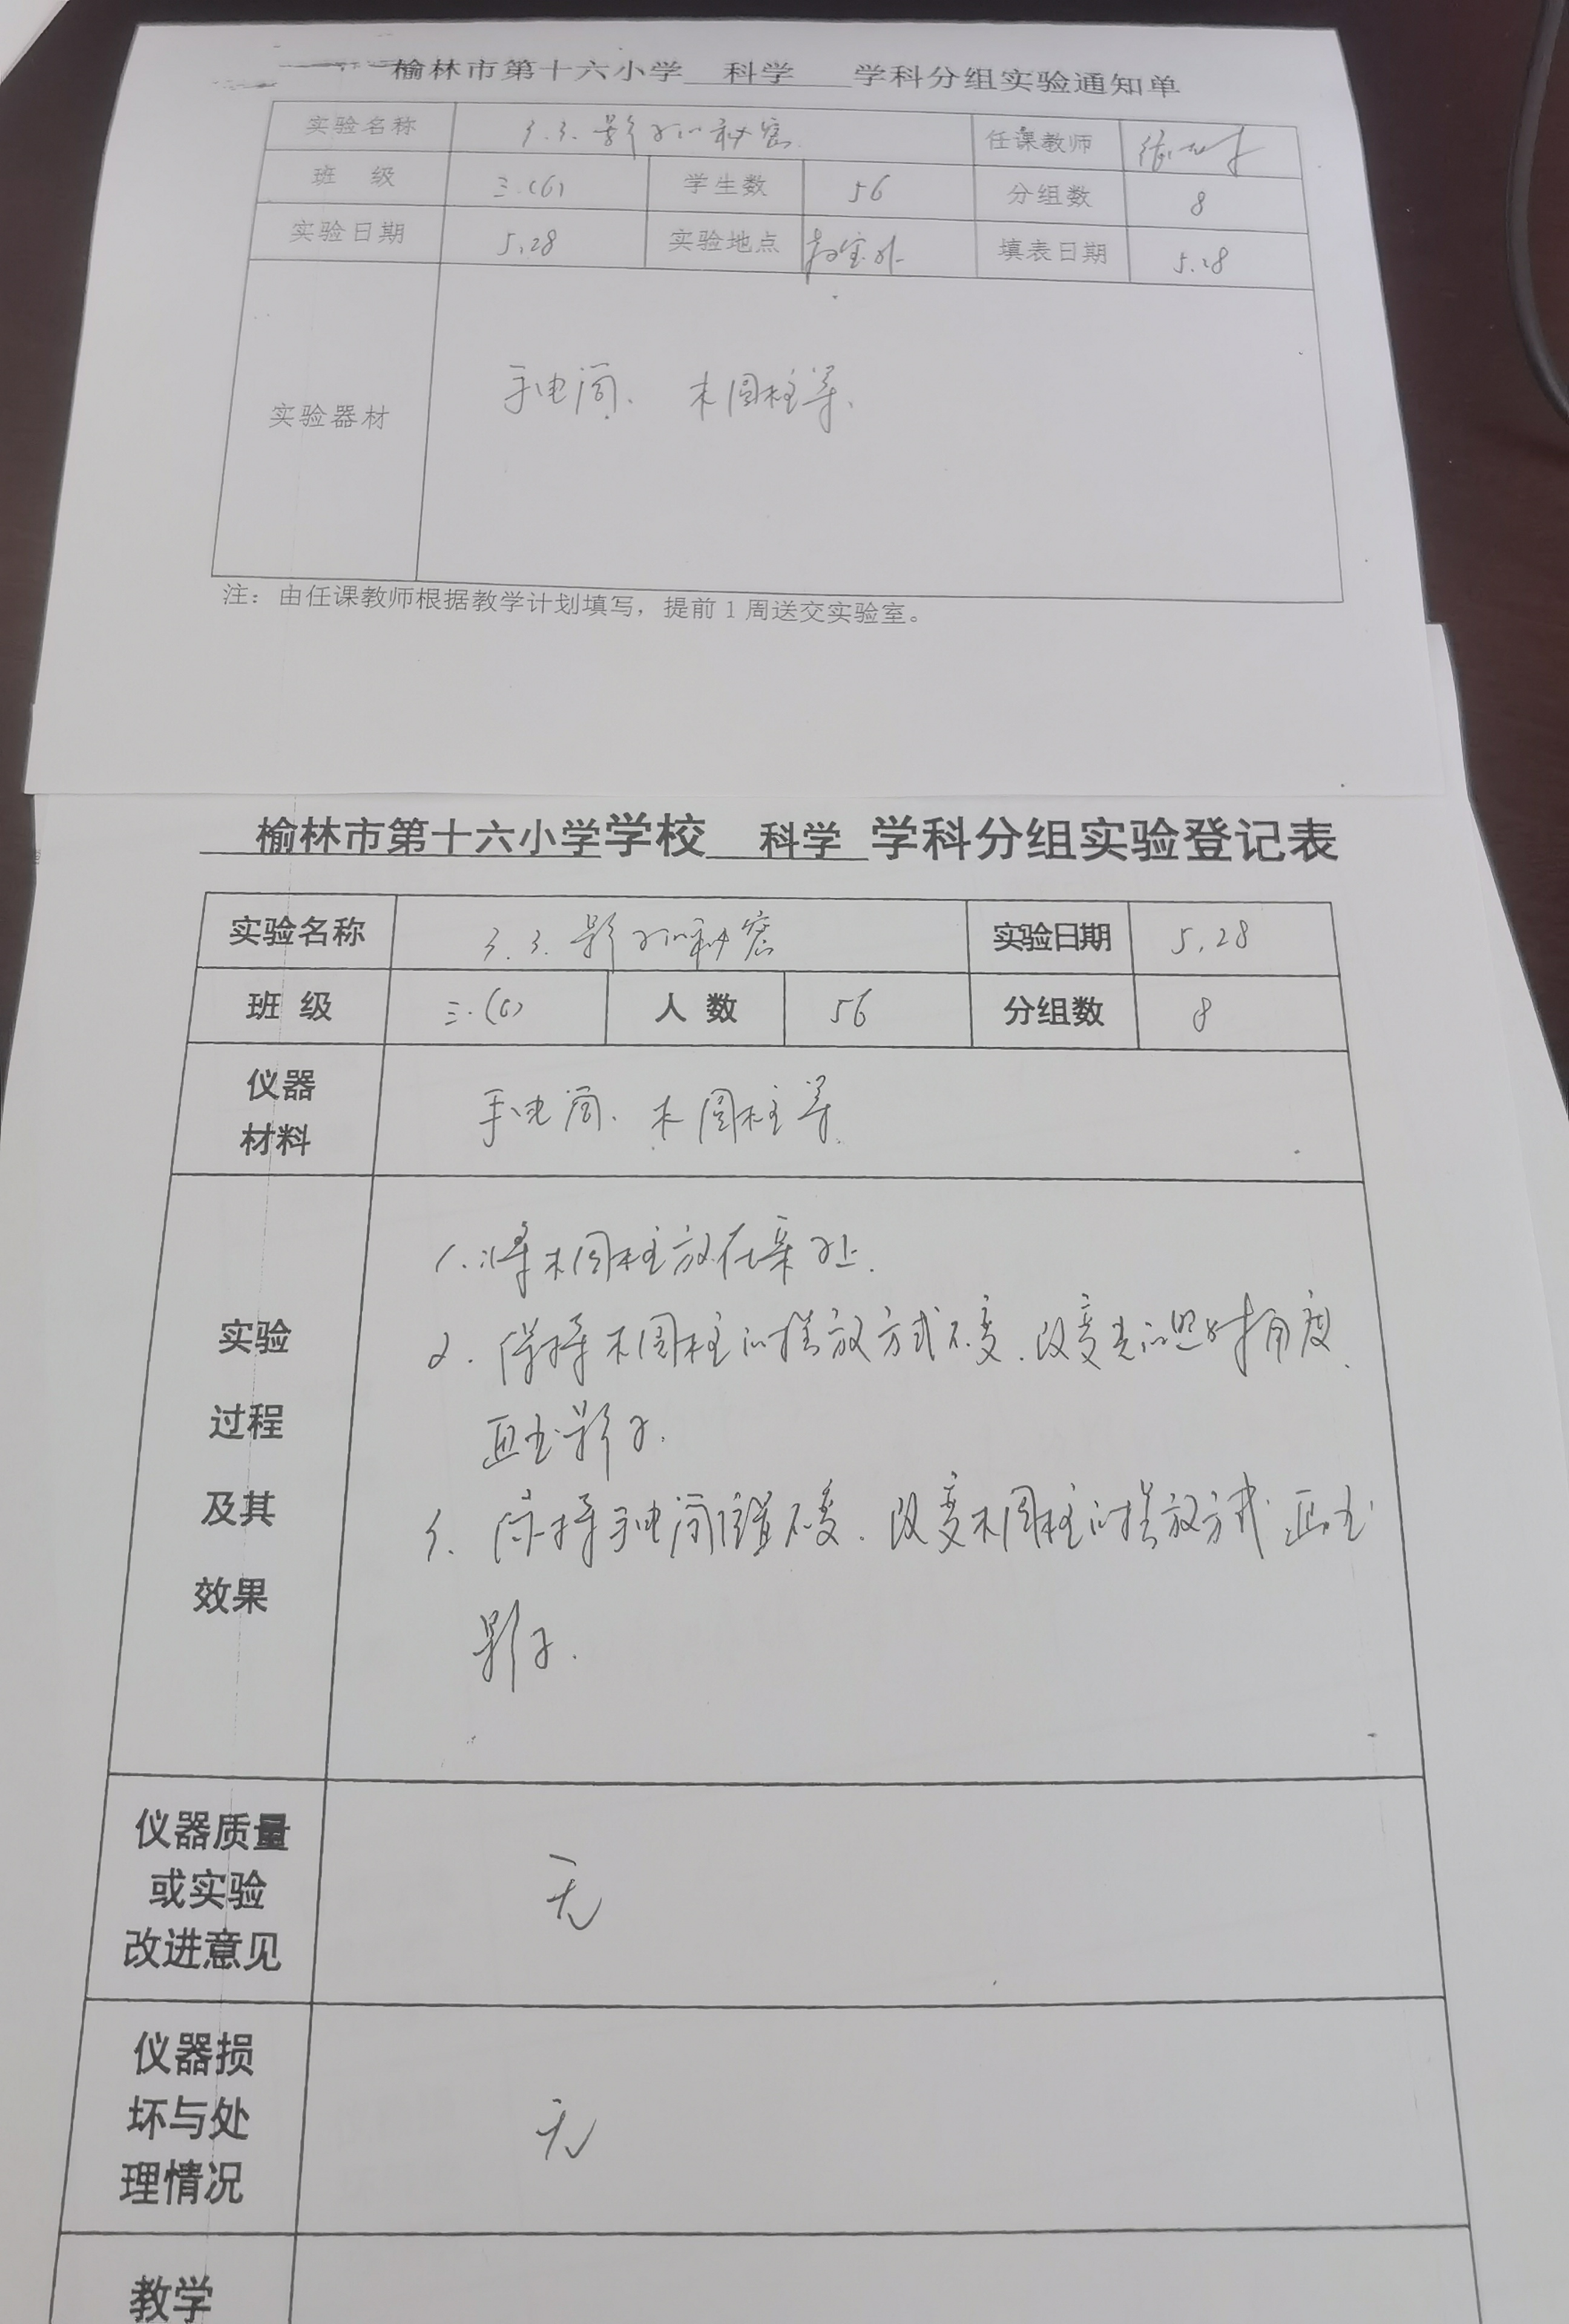 榆林市第十六小学 科学 学科分组实验通知单
实验名称 3.3.影子的秘密 任课教师
班 级 三.(6) 学生数 56 分组数 8
实验日期 5.28 实验地点 教室外 填表日期 5.28
实验器材 手电筒、木圆柱等.
注：由任课教师根据教学计划填写，提前1周送交实验室。
榆林市第十六小学学校 科学 学科分组实验登记表
实验名称 3.3.影子的秘密 实验日期 5.28
班 级 三.(6) 人 数 56 分组数 8
仪器
材料
手电筒、木圆柱等.
实验
过程
及其
效果
1.将木圆柱放在桌子上.
2.保持木圆柱的摆放方式不变.改变光的照射角度.
画出影子.
3.保持手电筒位置不变.改变木圆柱的摆放方式.画出
影子.
仪器质量
或实验
改进意见
无
仪器损
坏与处
理情况
无
教学